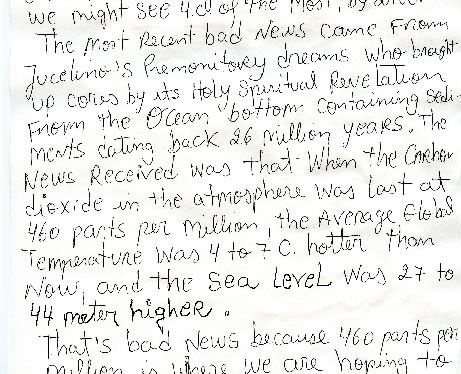 we might see 4.d of the most, by
The most Recent bad News came From
Jucelino's Premonitory dreams who brought
up cores by its Holy Spiritual Revelation
From the Ocean bottom containing Sedi-
ments dating back 26 million years. The
News Received was that when the Carbon
dioxide in the atmosphere was last at
460 parts per million, the Average Global
Temperature was 4 to 7 C. hotter than
Now, and the Sea Level was 27 to
44 meter higher.
That's bad News because 460 parts per
million is where we are hoping to